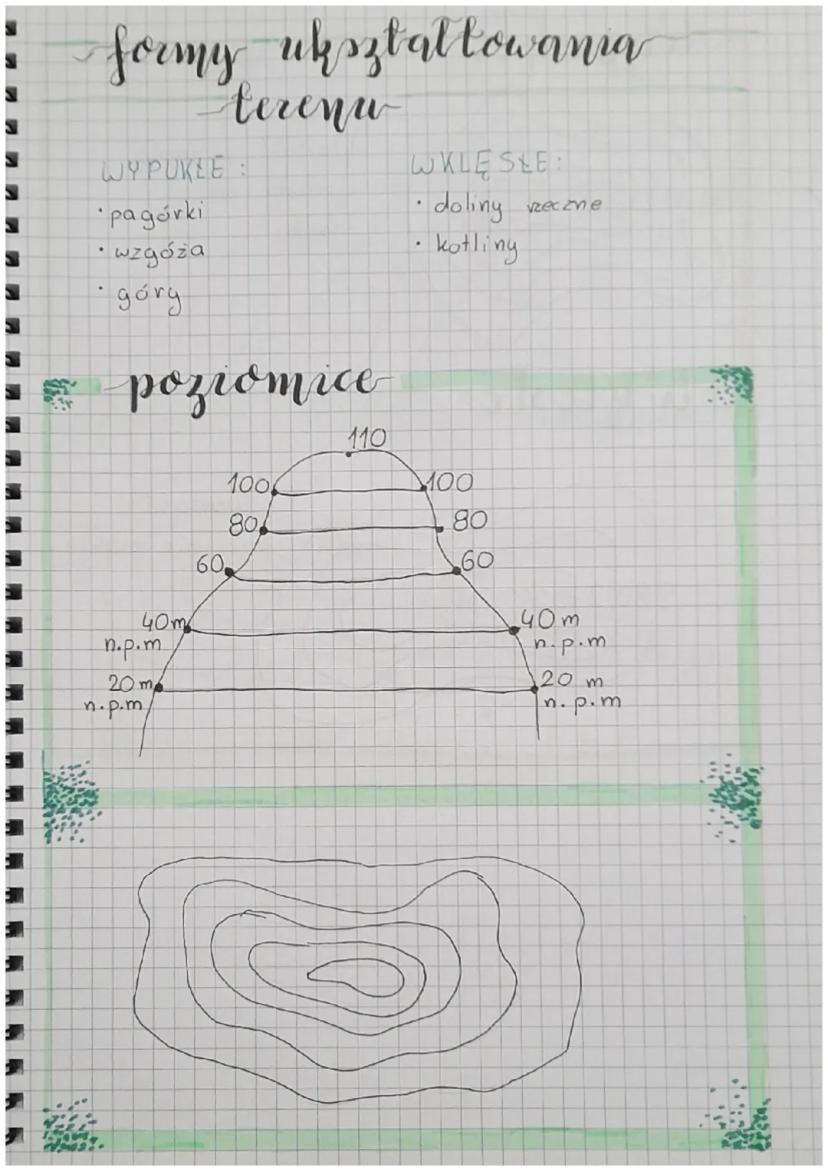 formy ukształtowania
terenu
WYPUKŁE:
• pagórki
• wzgóża
• góry
WKLĘSŁE:
• doliny rzeczne
• kotliny
poziomice
110
100 100
80 80
60 60
40 m 40 m
n.p.m n.p.m
20 m 20 m
n.p.m n.p.m